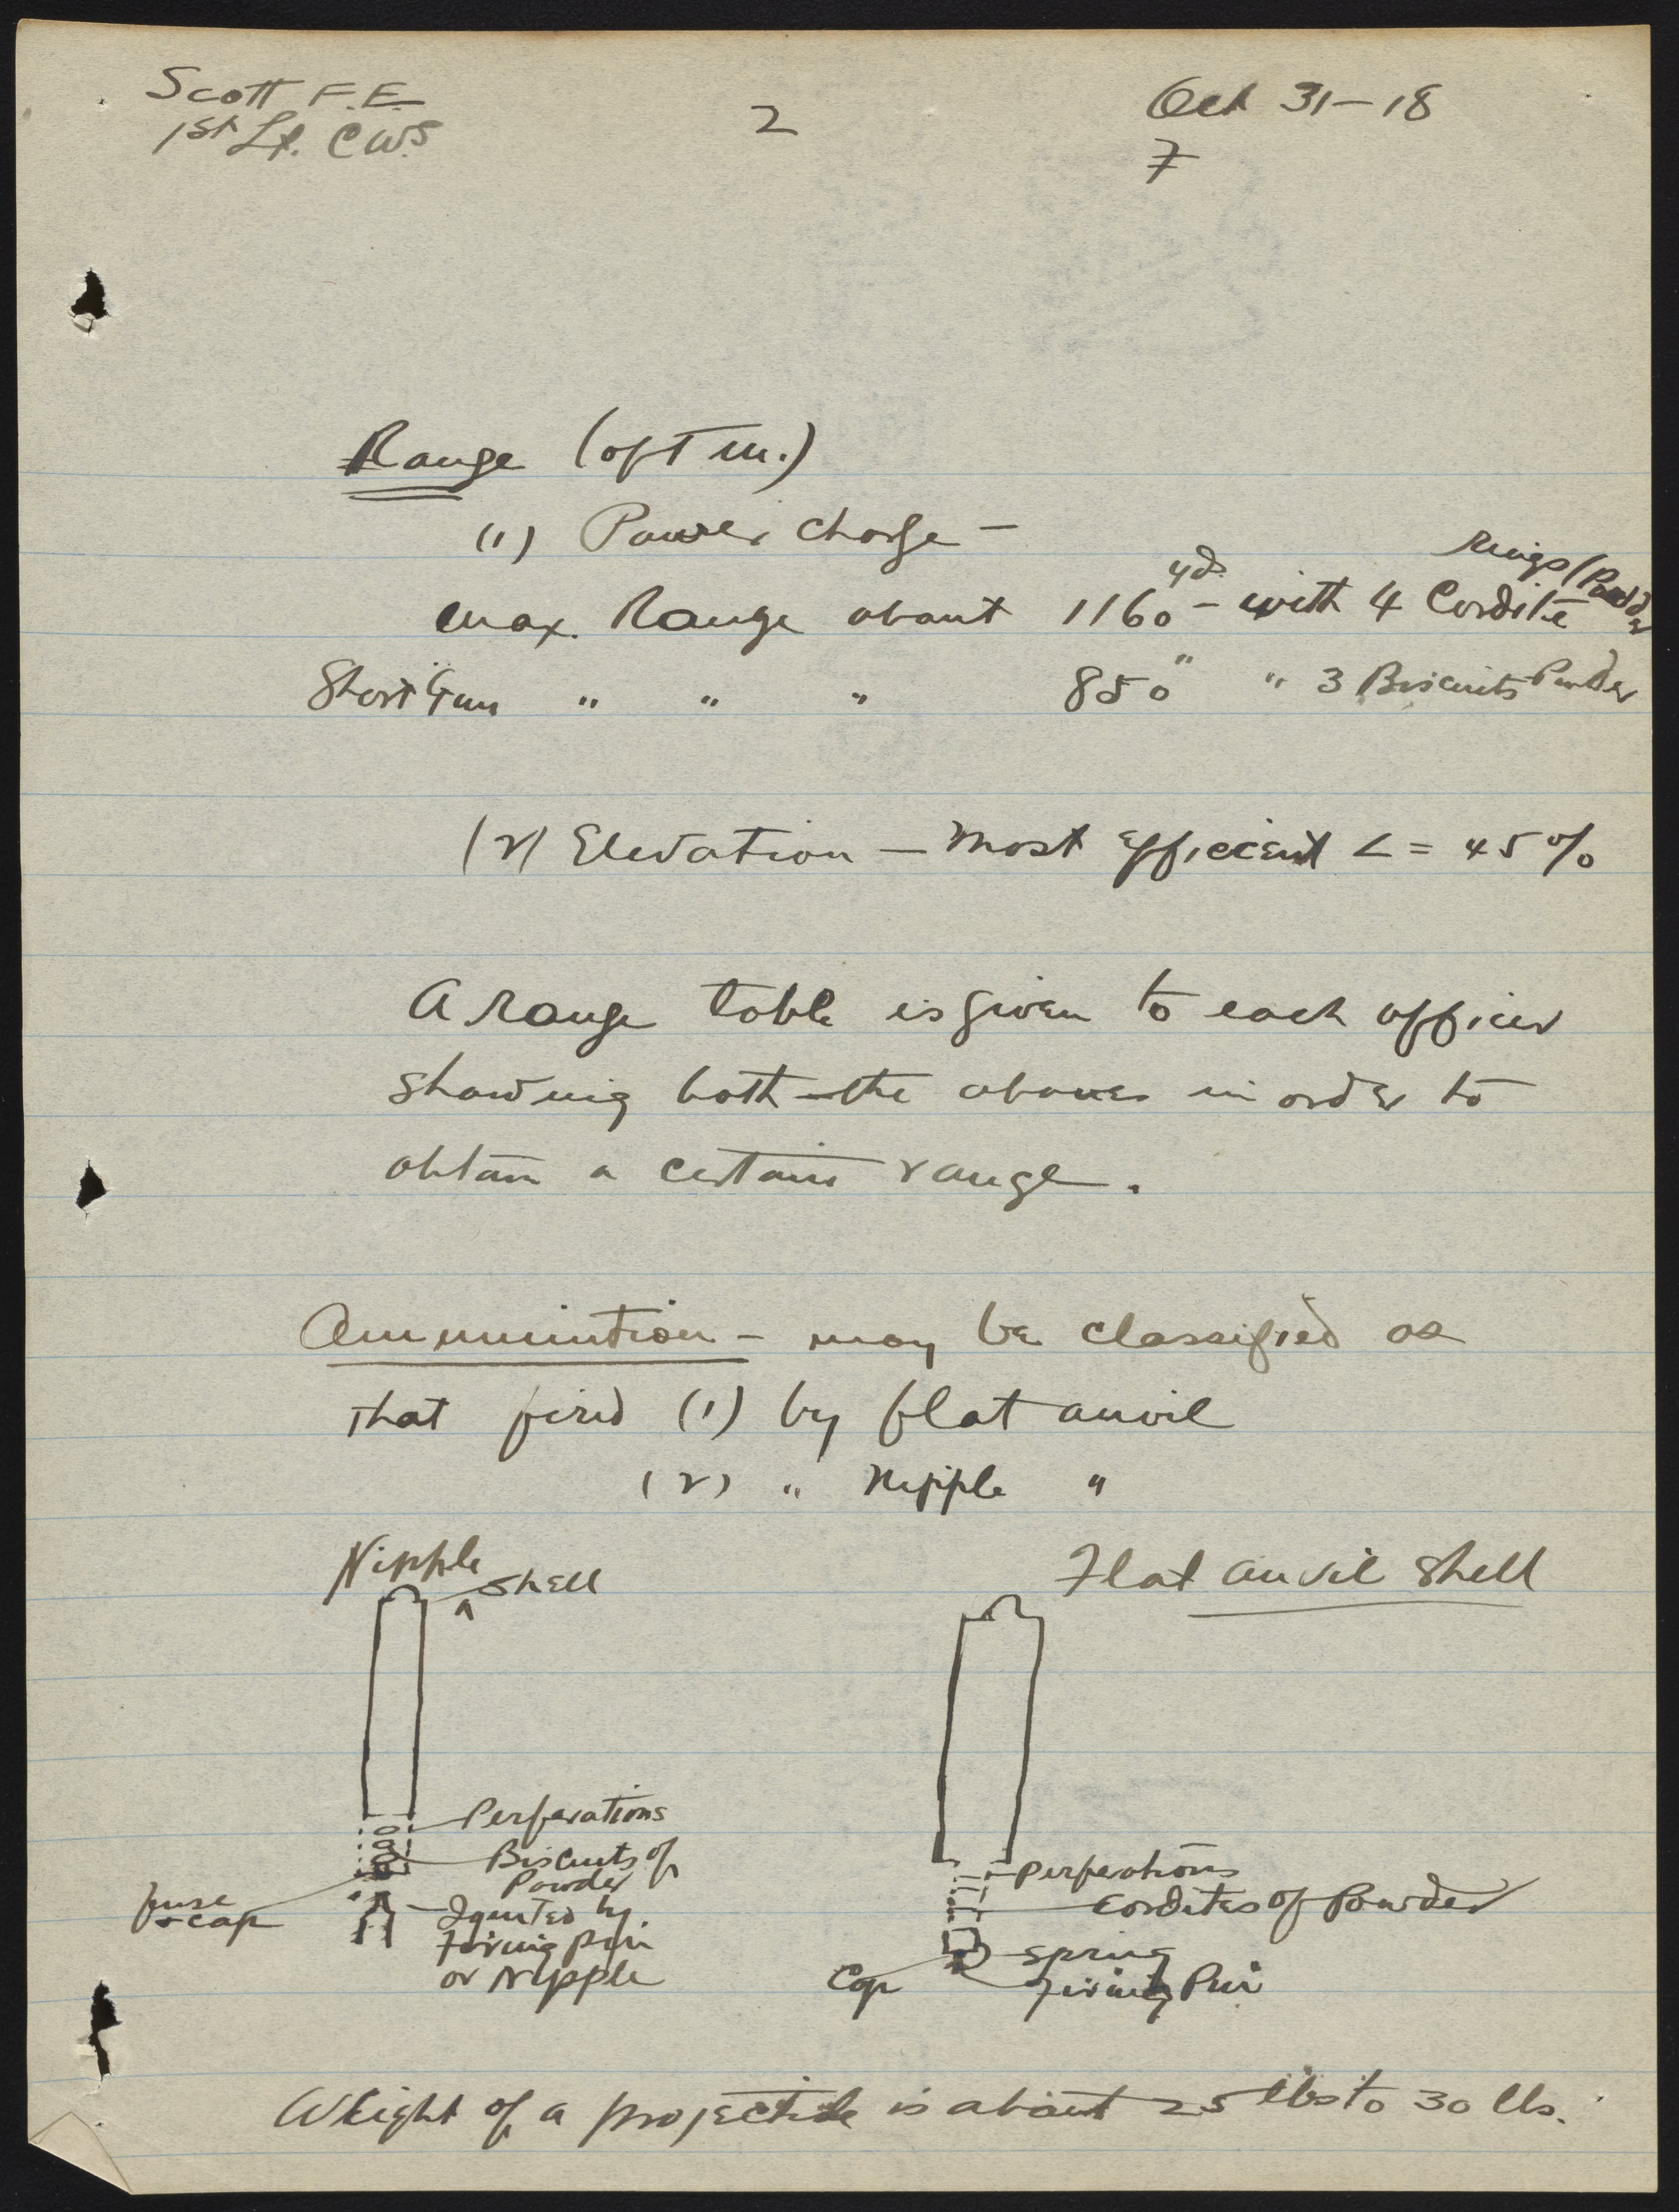 Scott F.E.
1st Lt. C.W.S
2
Oct 31-18
7
Range (of T.M.)
(1) Power Charge -
Max. Range about 1160 yd. - with 4 Cordite Rings (Powder
Short Gun " " " 850 " " 3 Biscuits Powder
(2) Elevation - Most efficient < = 45%
A Range table is given to each officer
showing both the above in order to
obtain a certain range.
Ammunition - may be classified as
that fired (1) by flat anvil
(2) " Nipple "
Nipple Shell
Flat anvil Shell
Perforations
Biscuits of
Powder
fuse
+ cap
Ignited by
Firing pin
or Nipple
Perforations
Cordites of Powder
Spring
Cap
Firing Pin
Weight of a projectile is about 25 lbs to 30 lbs.